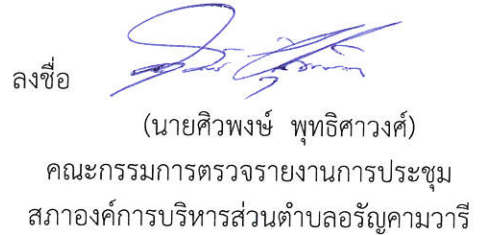 ลงชื่อ
(นายศิวพงษ์ พุทธิศาวงศ์)
คณะกรรมการตรวจรายงานการประชุม
สภาองค์การบริหารส่วนตำบลอรัญคามวารี